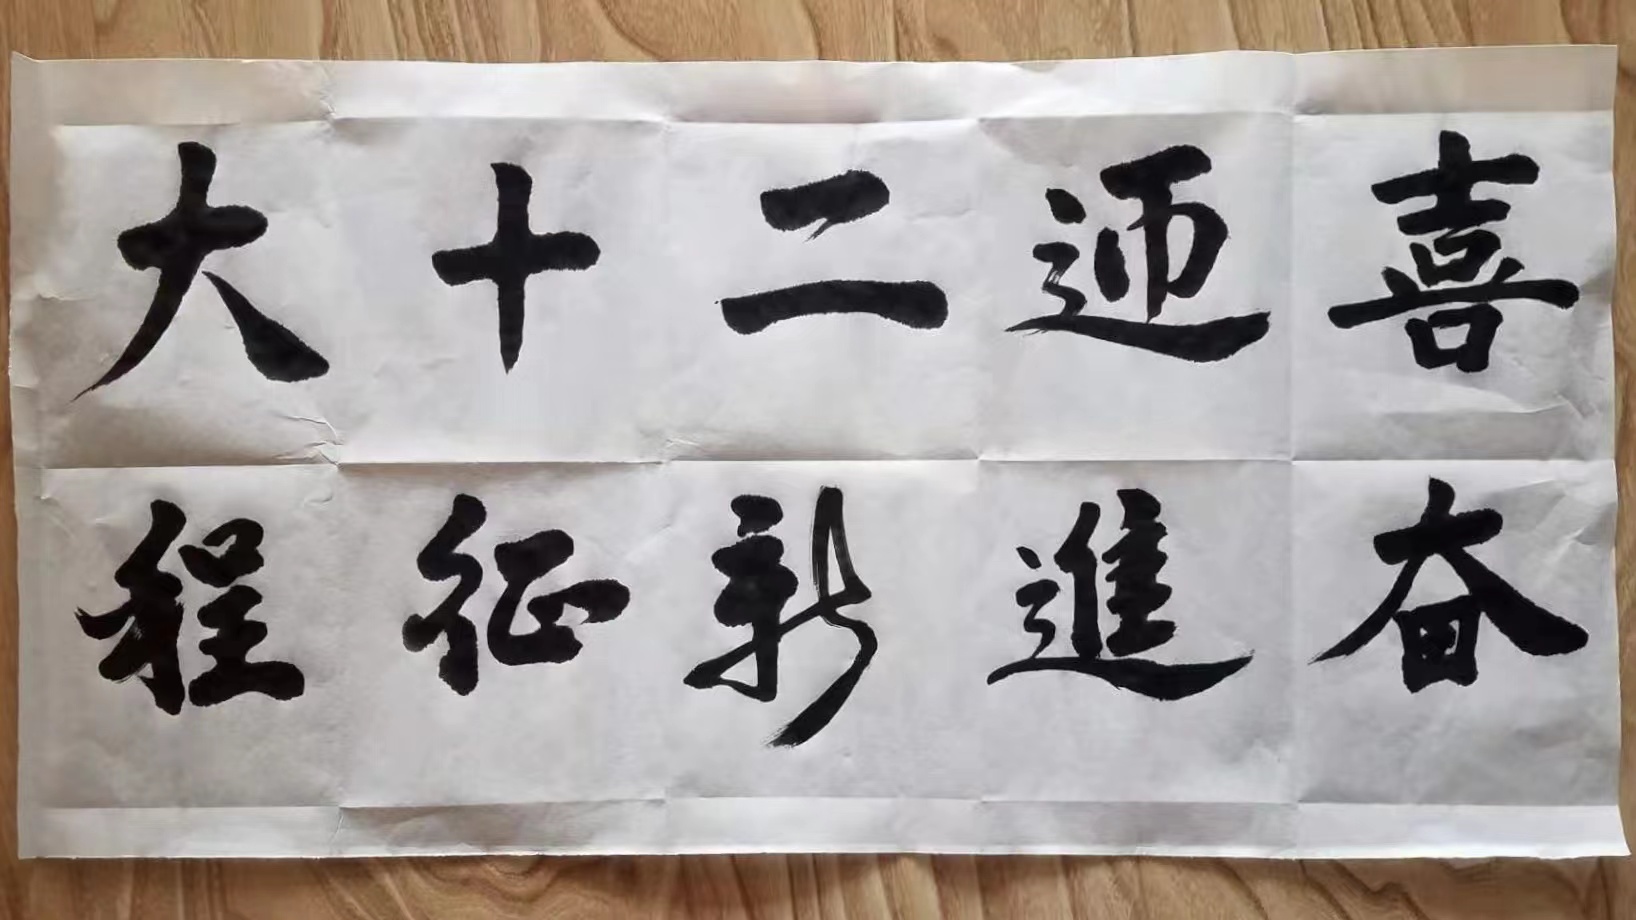 喜迎二十大
奋進新征程